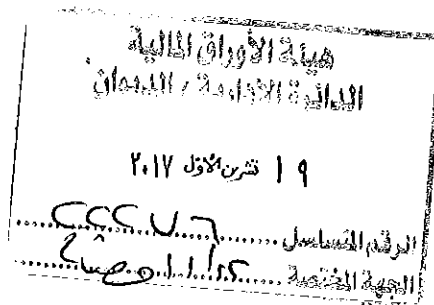 هيئة الأوراق المالية
الدائرة الإدارية / الديوان
١٩ تشرين الأول ٢٠١٧
الرقم المتسلسل ٢٢٢٧٦
الجهة المختصة